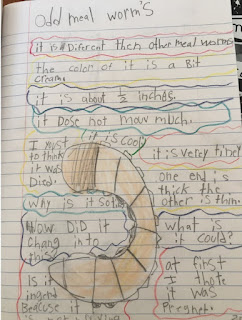 Odd meal worm's
it is Different then other meal worms
the color of it is a Bit
cream.
it is about 1/2 inches.
it Dose not mov much.
it is cool
I must
to think
it was
Died.
it is verey tiney
one end is
thick the
other is thin.
why is it so
How DiD it
chang in to
this
what is
it could?
at first
I thote
it was
Pregnet.
Is it
injerd
Beacuse it
is not